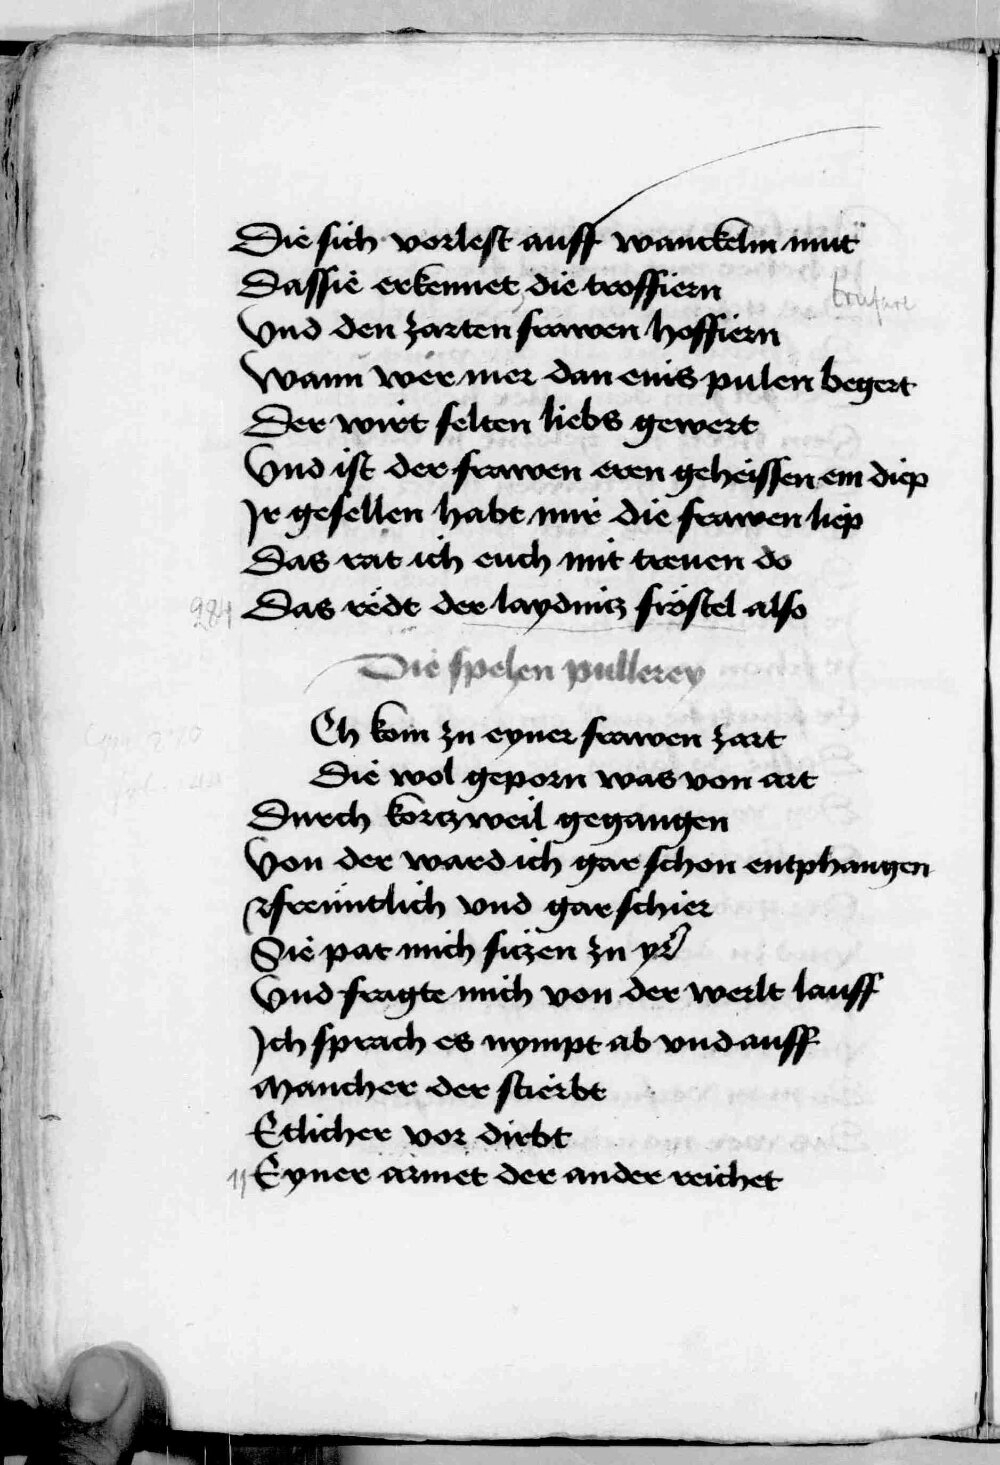 Die sich vorlest auff wanckeln mut
Das sie erkennet die troffiern
Vnd den zarten frawen hoffiern
Wann wer mer dan einis pulen begert
Der wirt selten liebs gewert
Vnd ist der frawen eren geheissen ein diep
Jr gesellen habt mir die frawen liep
Das rat ich euch mit treuen do
284 Das redt der laydnitz fröstel also
Die spehen pullerey
Ch kom zu eyner frawen zart
Die wol geporn was von art
Durch kortzweil gegangen
Von der ward ich gar schon entphangen
freüntlich vnd gar schier
Sie pat mich sitzen zu yr
Vnd fragte mich von der werlt lauff
Jch sprach es nympt ab vnd auff
Mancher der stierbt
Etlicher vor dirbt
Eyner armet der ander reichet